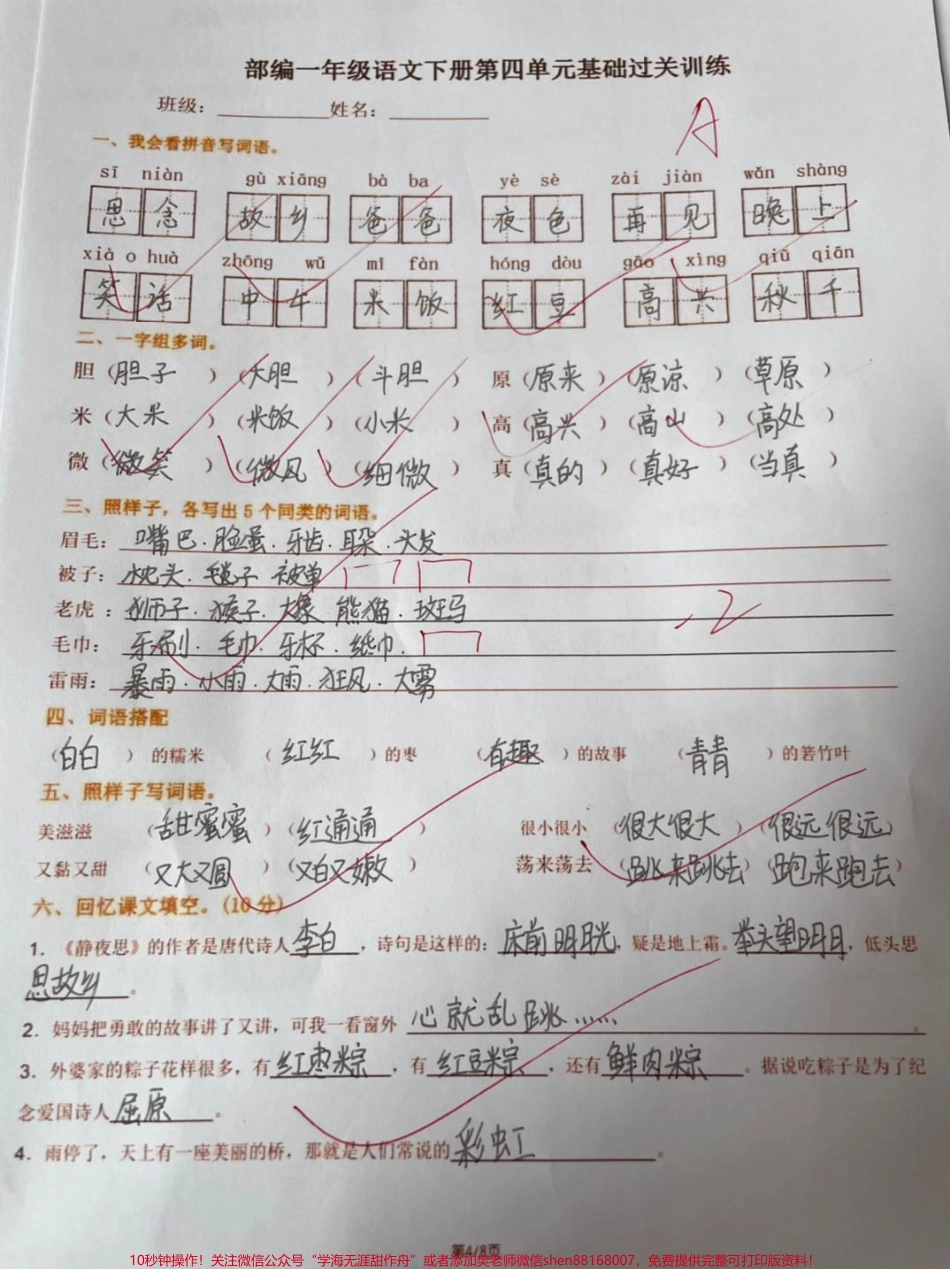 部编一年级语文下册第四单元基础过关训练
班级：__________姓名：_________
A
一、我会看拼音写词语。
sī niàn gù xiāng bà ba yè sè zài jiàn wǎn shàng
思念 故乡 爸爸 夜色 再见 晚上
xià o huà zhōng wǔ mǐ fàn hóng dòu gāo xìng qiū qiān
笑话 中午 米饭 红豆 高兴 秋千
二、一字组多词。
胆（胆子）（大胆）（斗胆） 原（原来）（原谅）（草原）
米（大米）（米饭）（小米） 高（高兴）（高山）（高处）
微（微笑）（微风）（细微） 真（真的）（真好）（当真）
三、照样子，各写出5个同类的词语。
眉毛：嘴巴.脸蛋.牙齿.耳朵.头发
被子：枕头.毯子 被单
老虎：狮子.猴子.大象 熊猫.斑马
-2
毛巾：牙刷.毛巾.牙杯.纸巾.
雷雨：暴雨.小雨.大雨.狂风.大雾
四、词语搭配
（白白）的糯米 （红红）的枣 （有趣）的故事 （青青）的箬竹叶
五、照样子写词语。
美滋滋 （甜蜜蜜）（红通通） 很小很小 （很大很大）（很远很远）
又黏又甜 （又大又圆）（又白又嫩） 荡来荡去 （跳来跳去）（跑来跑去）
六、回忆课文填空。(10分)
1. 《静夜思》的作者是唐代诗人李白，诗句是这样的：床前明月光，疑是地上霜。举头望明月，低头思
思故乡。
2. 妈妈把勇敢的故事讲了又讲，可我一看窗外 心就乱跳……。
3. 外婆家的粽子花样很多，有红枣粽，有红豆粽，还有鲜肉粽。据说吃粽子是为了纪
念爱国诗人屈原。
4. 雨停了，天上有一座美丽的桥，那就是人们常说的彩虹。
第4/8页
10秒钟操作！关注微信公众号“学海无涯甜作舟”或者添加樊老师微信shen88168007，免费提供完整可打印版资料！